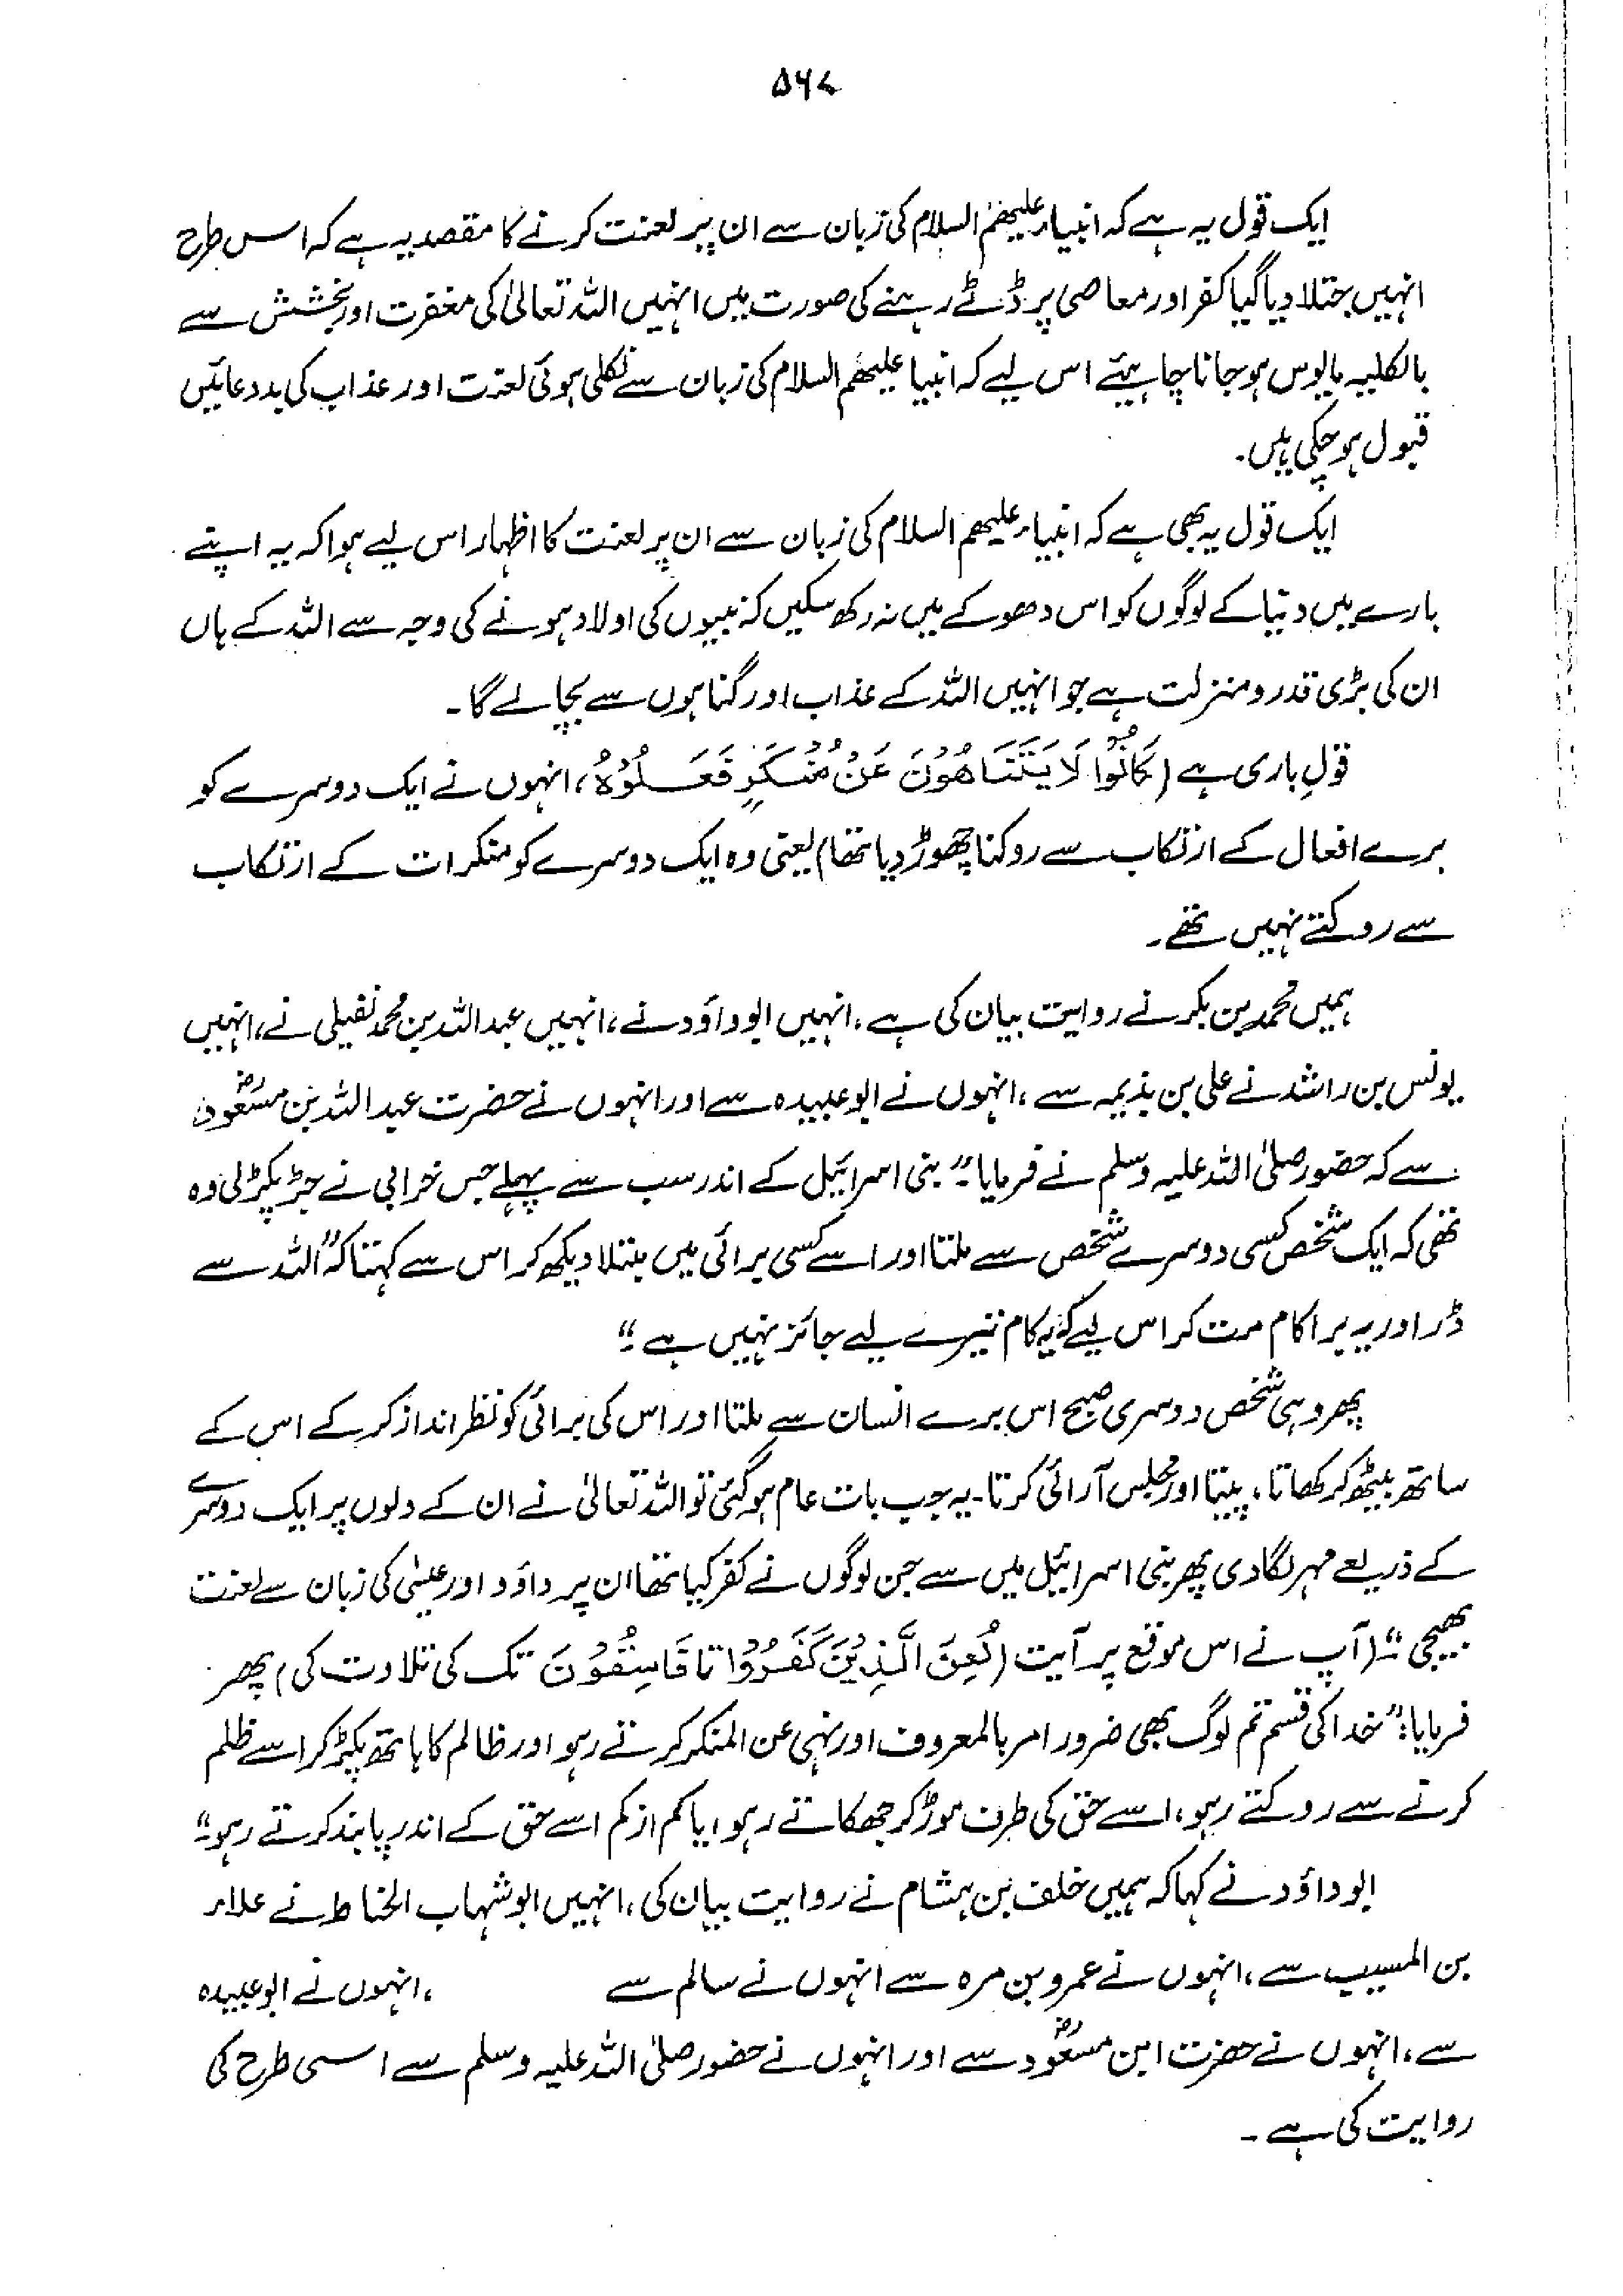 ۵۶۷
ایک قول یہ ہے کہ انبیاء علیھم السلام کی زبان سے ان پر لعنت کرنے کا مقصد یہ ہے کہ اس طرح
انہیں جتلا دیا گیا کفر اور معاصی پر ڈٹے رہنے کی صورت میں انہیں اللہ تعالیٰ کی مغفرت اور بخشش سے
بالکلیہ مایوس ہو جانا چاہیئے اس لیے کہ انبیا علیھم السلام کی زبان سے نکلی ہوئی لعنت اور عذاب کی بددعائیں
قبول ہو چکی ہیں۔
ایک قول یہ بھی ہے کہ انبیاء علیھم السلام کی زبان سے ان پر لعنت کا اظہار اس لیے ہوا کہ یہ اپنے
بارے میں دنیا کے لوگوں کو اس دھوکے میں نہ رکھ سکیں کہ نبیوں کی اولاد ہونے کی وجہ سے اللہ کے ہاں
ان کی بڑی قدر و منزلت ہے جو انہیں اللہ کے عذاب اور گناہوں سے بچا لے گا۔
قولِ باری ہے (كَانُوْا لَا يَتَنَاهُوْنَ عَنْ مُنْكَرٍ فَعَلُوْهُ، انہوں نے ایک دوسرے کو
برے افعال کے ارتکاب سے روکنا چھوڑ دیا تھا) یعنی وہ ایک دوسرے کو منکرات کے ارتکاب
سے روکتے نہیں تھے۔
ہمیں محمد بن بکر نے روایت بیان کی ہے، انہیں ابوداؤد نے، انہیں عبداللہ بن محمد نفیلی نے، انہیں
یونس بن راشد نے علی بن بذیمہ سے، انہوں نے ابو عبیدہ سے اور انہوں نے حضرت عبداللہ بن مسعودؓ
سے کہ حضور صلی اللہ علیہ وسلم نے فرمایا "بنی اسرائیل کے اندر سب سے پہلے جس خرابی نے جڑ پکڑلی وہ
تھی کہ ایک شخص کسی دوسرے شخص سے ملتا اور اسے کسی برائی میں مبتلا دیکھ کر اس سے کہتا کہ "اللہ سے
ڈر اور یہ برا کام مت کر اس لیے کہ یہ کام تیرے لیے جائز نہیں ہے۔"
پھر وہی شخص دوسری صبح اس برے انسان سے ملتا اور اس کی برائی کو نظر انداز کر کے اس کے
ساتھ بیٹھ کر کھاتا، پیتا اور مجلس آرائی کرتا۔ یہ جب بات عام ہو گئی تو اللہ تعالیٰ نے ان کے دلوں پر ایک دوسرے
کے ذریعے مہر لگا دی پھر بنی اسرائیل میں سے جن لوگوں نے کفر کیا تھا ان پر داؤد اور عیسٰی کی زبان سے لعنت
بھیجی۔" (آپ نے اس موقع پر آیت (لُعِنَ الَّذِيْنَ كَفَرُوْا تا فَاسِقُوْنَ تک کی تلاوت کی) پھر
فرمایا: "خدا کی قسم تم لوگ بھی ضرور امر بالمعروف اور نہی عن المنکر کرتے رہو اور ظالم کا ہاتھ پکڑ کر اسے ظلم
کرنے سے روکتے رہو، اسے حق کی طرف موڑ کر جھکاتے رہو، یا کم از کم اسے حق کے اندر پابند کرتے رہو۔"
ابوداؤد نے کہا کہ ہمیں خلف بن ہشام نے روایت بیان کی، انہیں ابو شہاب الحناط نے علاء
بن المسیب سے، انہوں نے عمرو بن مرہ سے انہوں نے سالم سے ، انہوں نے ابو عبیدہ
سے، انہوں نے حضرت ابن مسعودؓ سے اور انہوں نے حضور صلی اللہ علیہ وسلم سے اسی طرح کی
روایت کی ہے۔